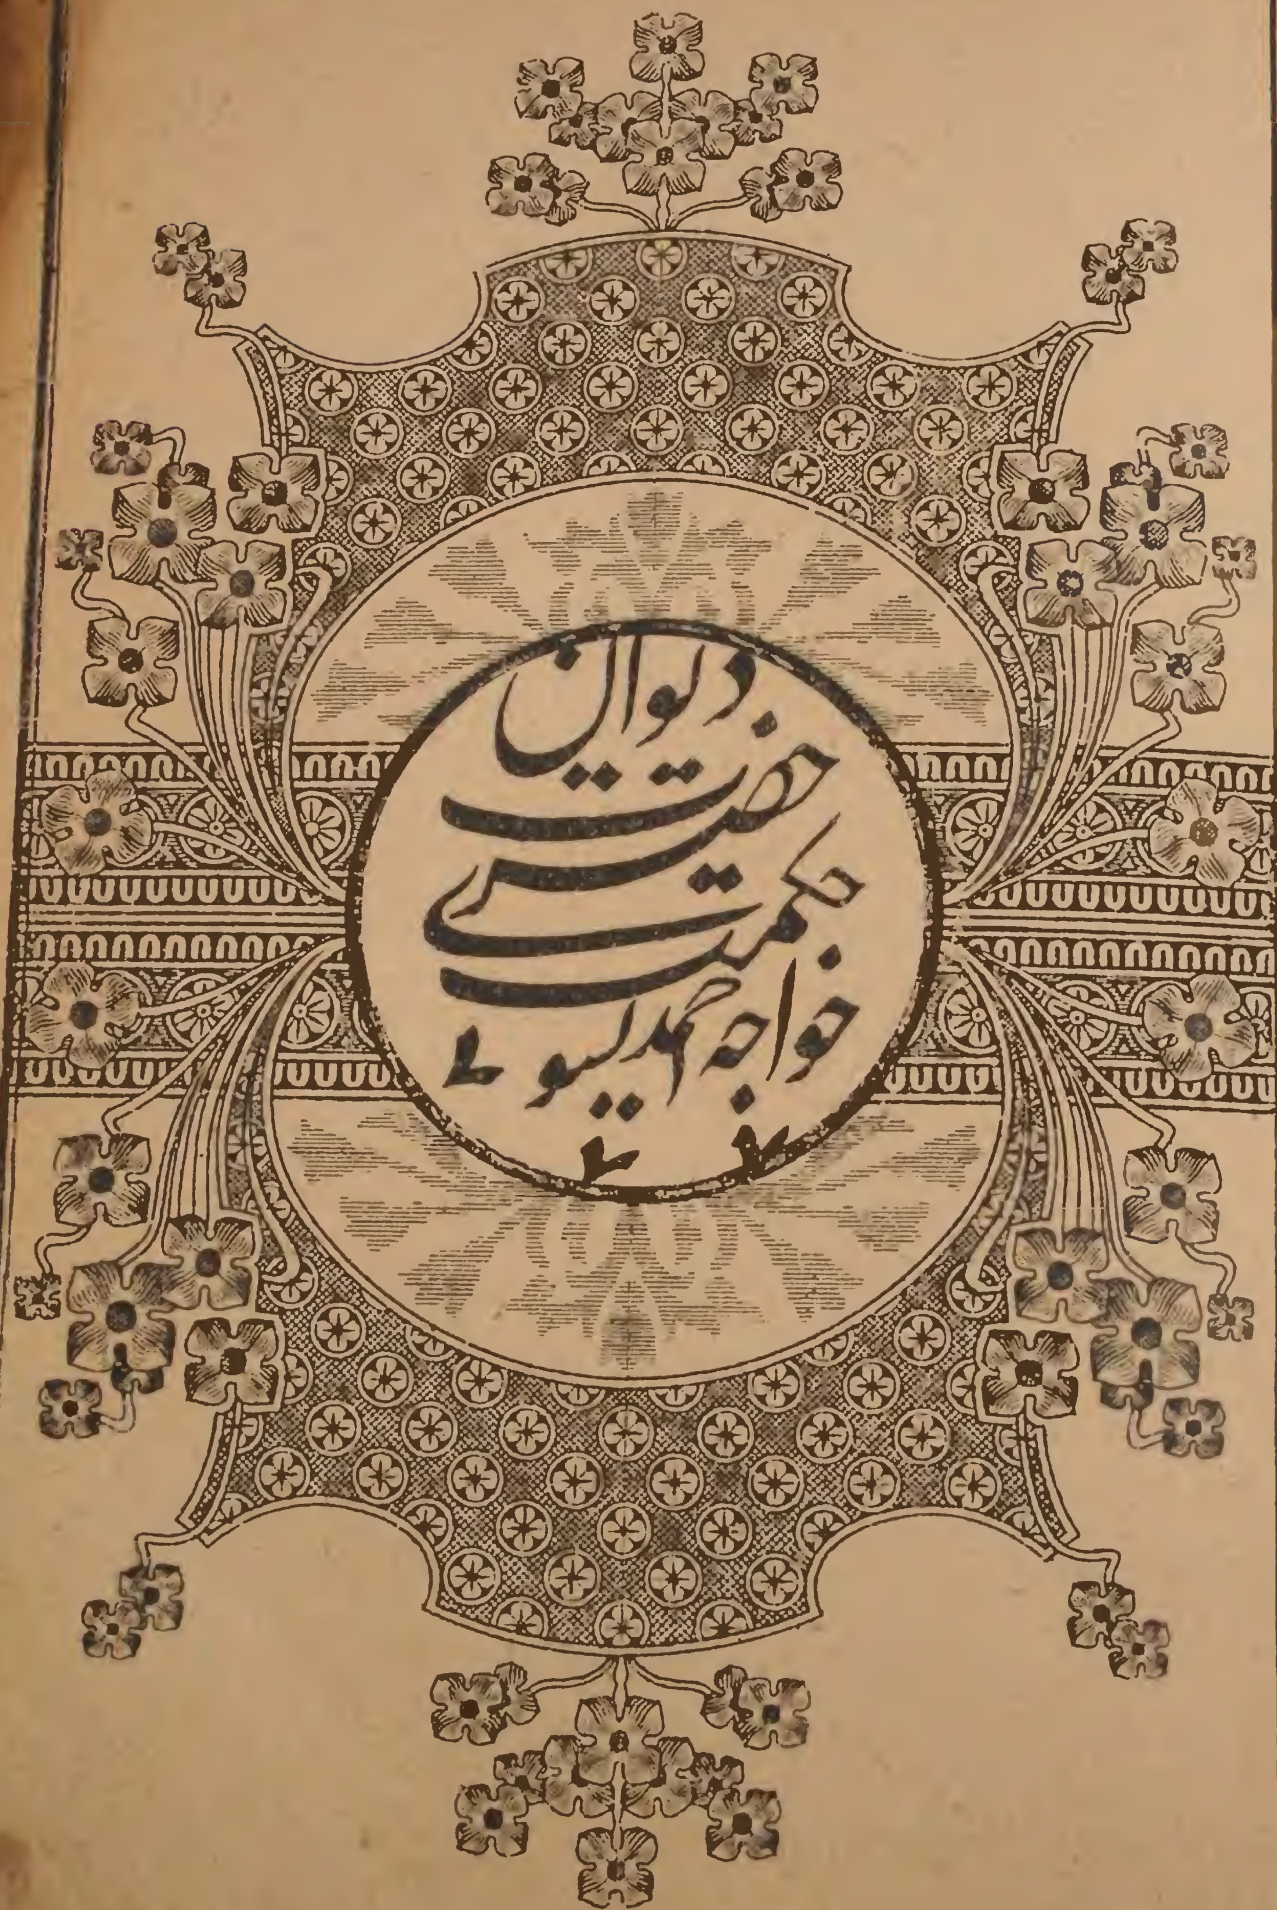 دیوان
حضرت
حکمت
خواجه احمد یسو